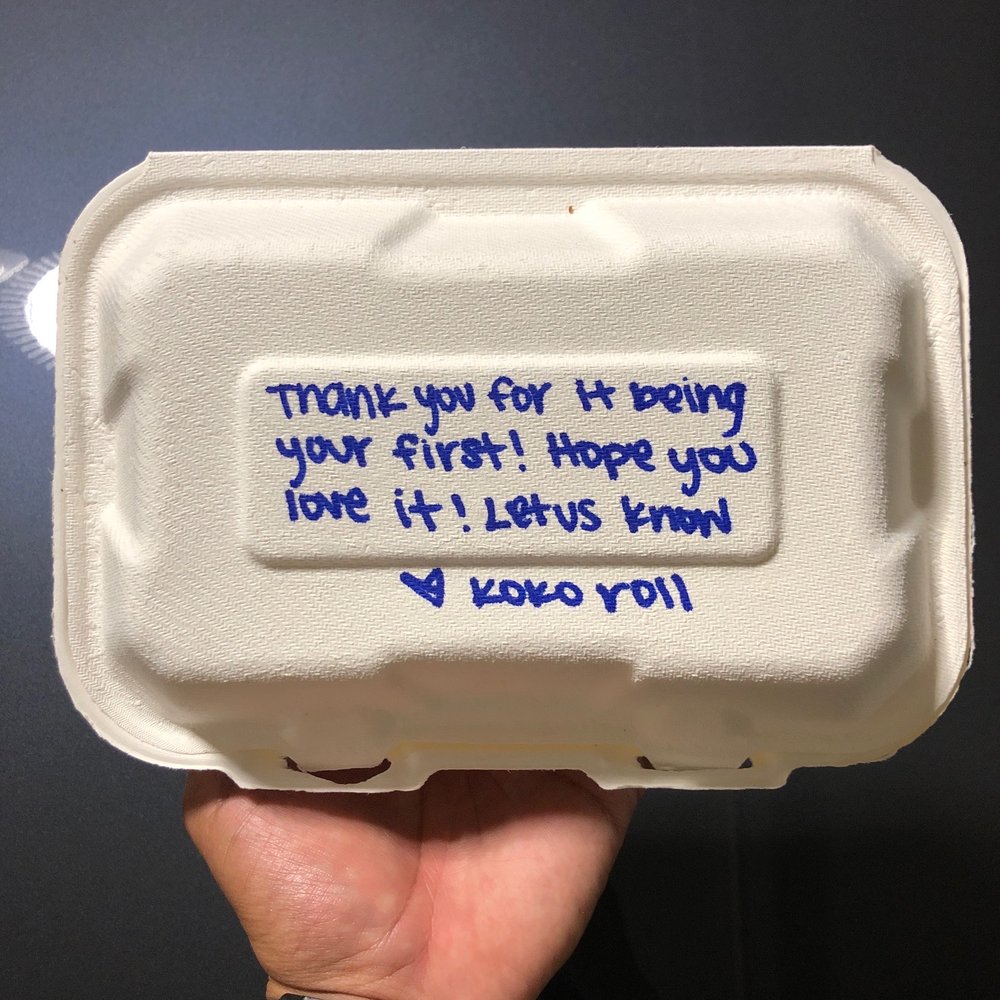 Thank you for it being
your first! Hope you
love it! Let us know
♥ koko roll